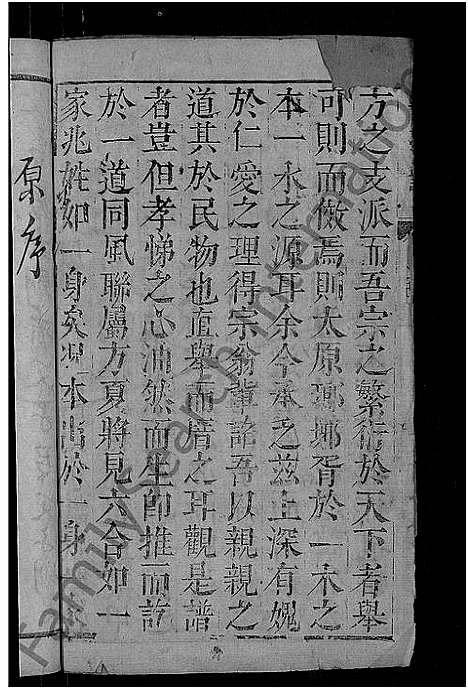 方之支派而吾宗之繁衍於天下者舉
可則而倣焉則太原瑯琊胥於一木之
本一水之源耳余今承乏茲土深有媿
於仁愛之理得宗翁輩詫吾以親親之
道其於民物也直舉而厝之耳觀是譜
者豈但孝悌之心油然而生即推而訖
於一道同風聯屬方夏將見六合如一
家兆姓如一身矣況本出於一身
原序
FamilySearch International